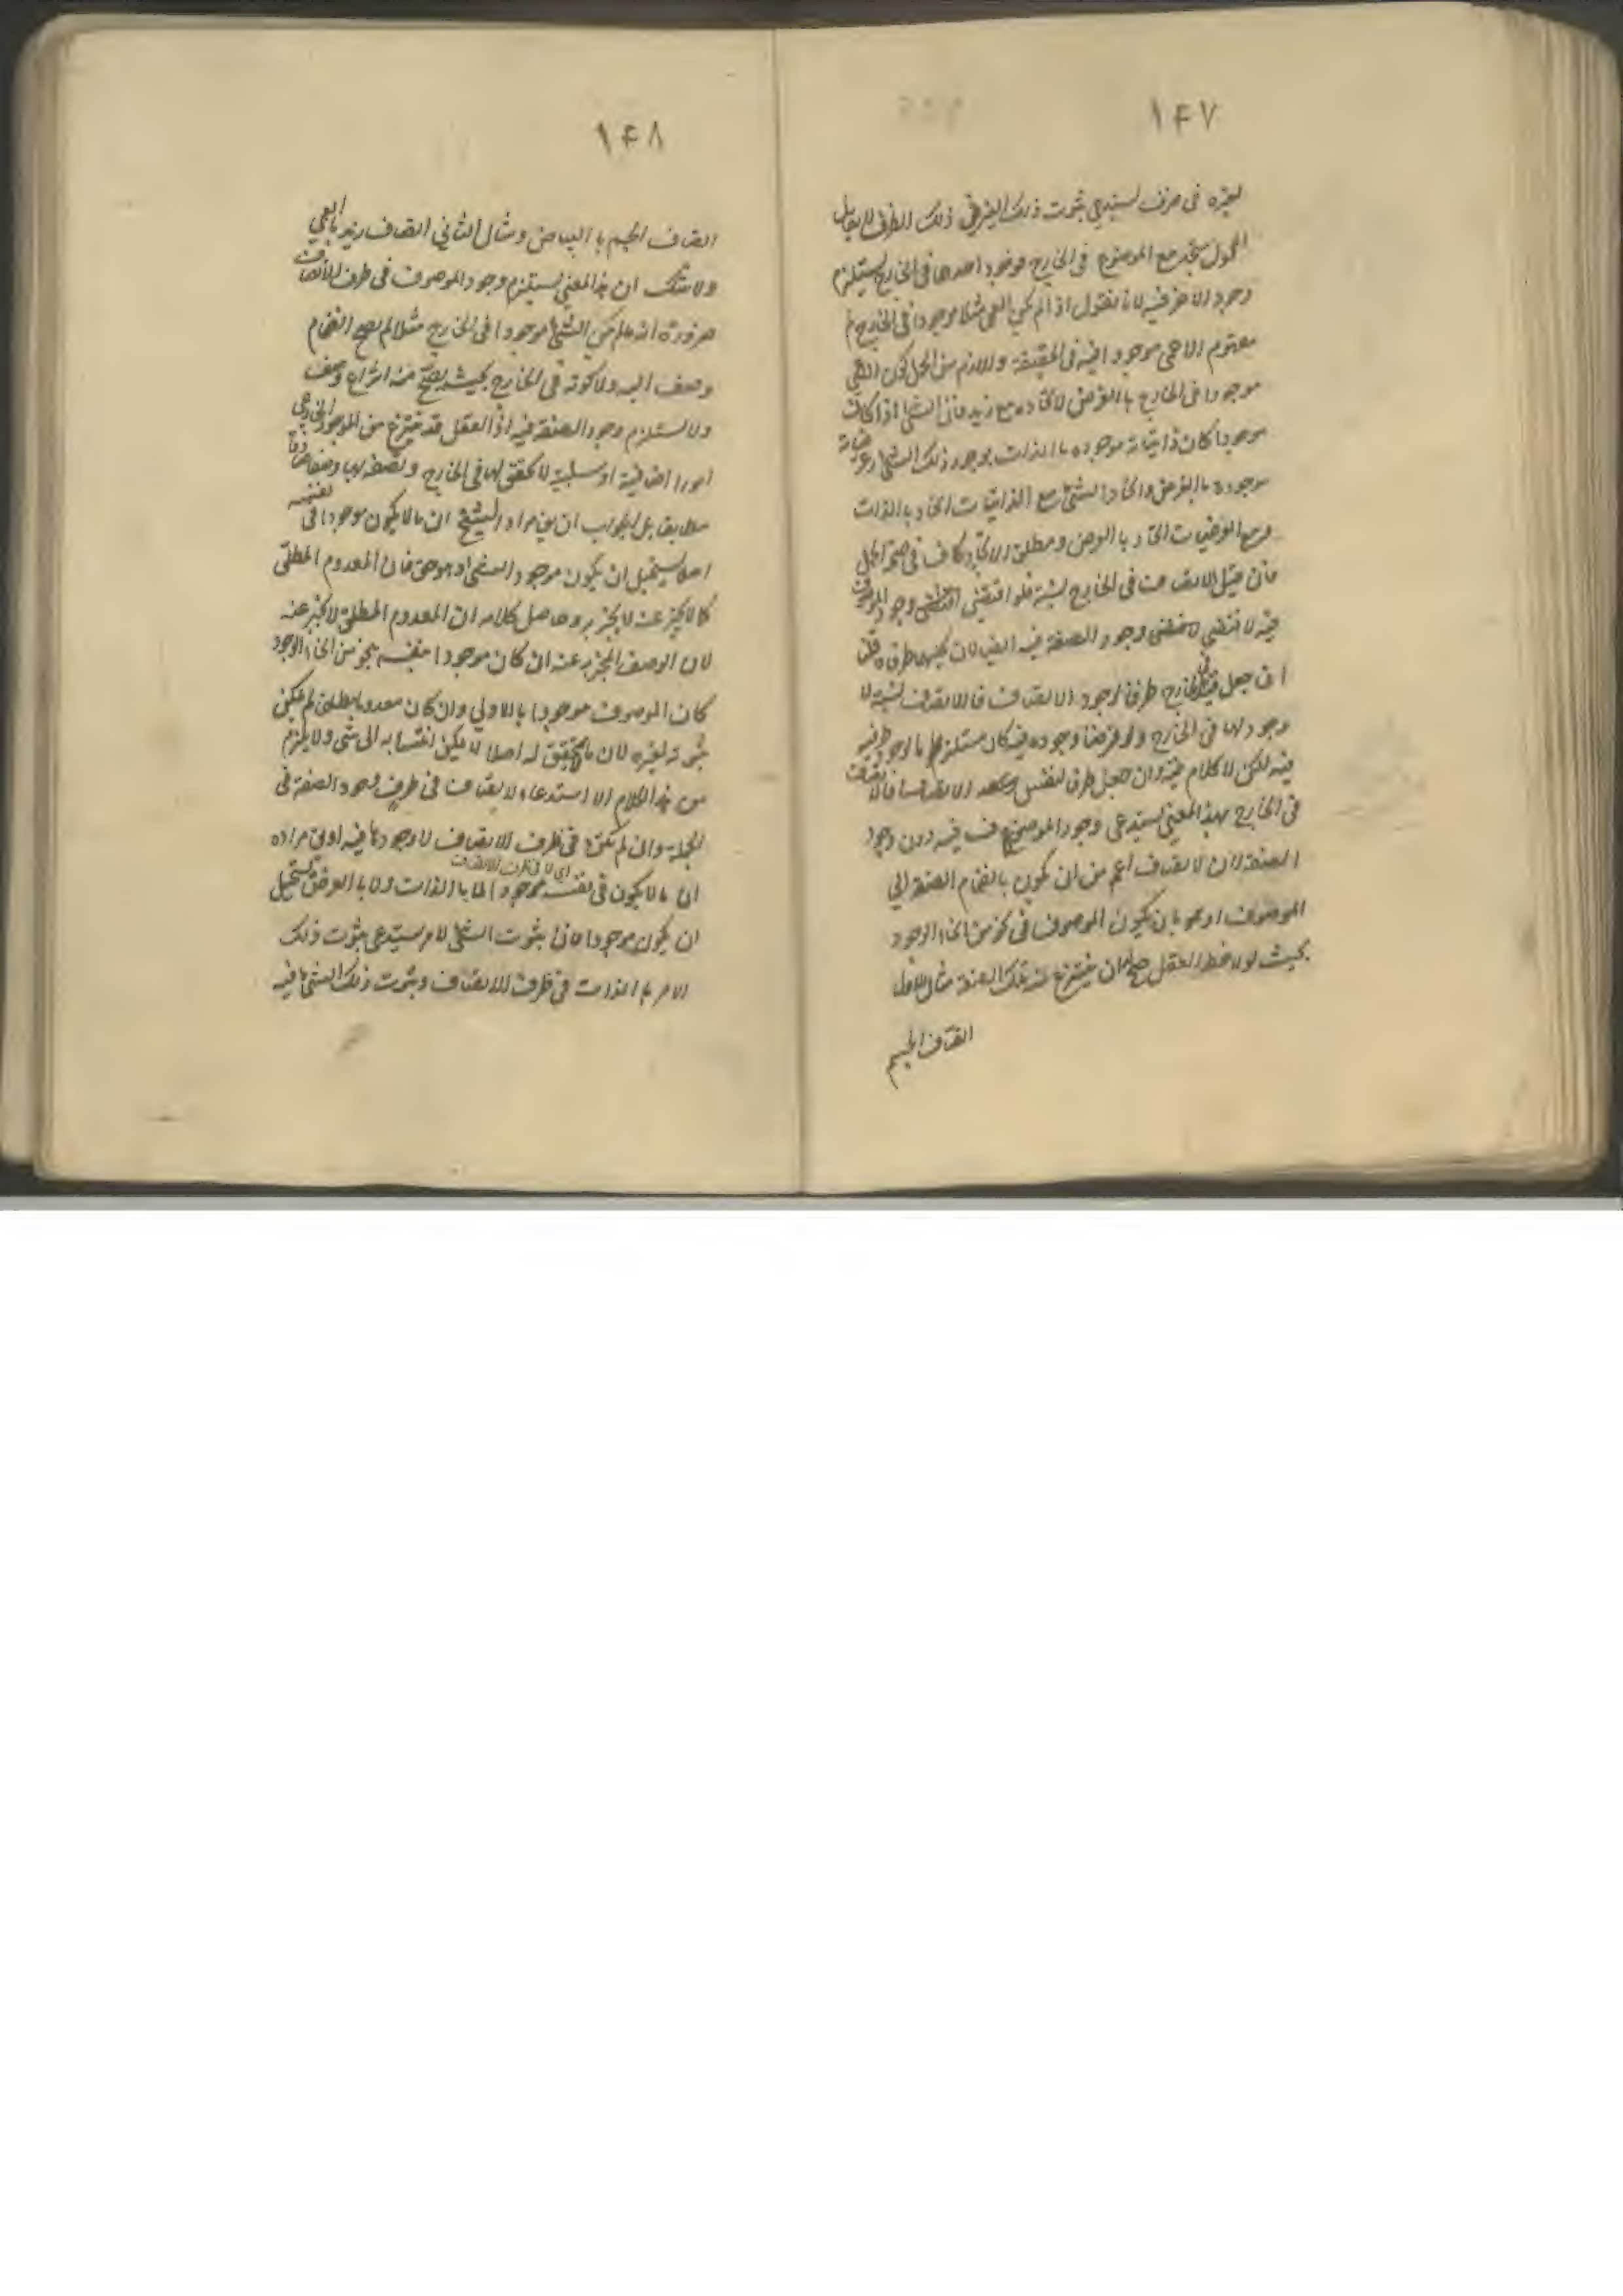 ١٤٧
لغيره فى ظرف يستدعي ثبوت ذلك الغير فى ذلك الظرف لا يقال
المحمول متحد مع الموضوع فى الخارج فوجود احدهما فى الخارج يستلزم
وجود الاخر فيه لانا نقول اذا لم يكن العمى مثلا موجودا فى الخارج لم
مفهوم الاعمى موجودا فيه فى الحقيقة واللازم من الحمل كون الاعمى
موجودا فى الخارج بالعرض لاتحاده مع زيد فان الشئ اذا كان
موجودا كان ذاتياته موجودة بالذات بوجود ذلك الشئ وعرضياته
موجودة بالعرض واتحاد الشئ مع الذاتيات اتحاد بالذات
ومع العرضيات اتحاد بالعرض ومطلق الاتحاد كاف فى صحة الحمل
فان قيل الاتصاف فى الخارج نسبة فلو اقتضى وجود الموصوف
فيه لاقتضى وجود الصفة فيه ايضا لان كليهما طرفاه قلنا
ان جعل الخارج ظرفا لوجود الاتصاف فالاتصاف نسبة لا
وجود لها فى الخارج ولو فرضنا وجوده فيه كان مستلزما لوجود طرفيه
فيه لكن لا كلام فيه وان جعل ظرفا لنفس الاتصاف فالاتصاف
فى الخارج بهذا المعنى يستدعى وجود الموصوف فيه دون وجود
الصفة لان الاتصاف اعم من ان يكون بانضمام الصفة الى
الموصوف او بان يكون الموصوف فى نحو من انحاء الوجود
بحيث لو لاحظه العقل صح له ان ينتزع منه تلك الصفة مثال الاول
اتصاف الجسم
١٤٨
اتصاف الجسم بالبياض ومثال الثانى اتصاف زيد بالعمى
ولا شك ان هذا المعنى يستلزم وجود الموصوف فى ظرف الاتصاف
ضرورة انه ما لم يكن الشئ موجودا فى الخارج مثلا لم يصح انضمام
وصف اليه ولا كونه فى الخارج بحيث يصح منه انتزاع وصف
ولا يستلزم وجود الصفة فيه اذ العقل قد ينتزع من الموجود الخارجى
امورا اضافية او سلبية لا تحقق لها فى الخارج ويصفه بها وصفا صادقا
مطابقا بل الجواب ان مراد الشيخ ان ما لا يكون موجودا فى نفسه
اصلا يستحيل ان يكون موجودا لشئ فان المعدوم المطلق
كما لا يخبر عنه لا يخبر به وحاصل كلامه ان المعدوم المطلق لا يخبر عنه
لان الوصف المخبر به عنه ان كان موجودا فى نفسه بنحو من انحاء الوجود
كان الموصوف موجودا بالاولى وان كان معدوما مطلقا لم يمكن
ثبوته لغيره لان ما لا تحقق له اصلا لا يمكن انتسابه الى شئ ولا يلزم
من هذا الكلام الا استدعاء الاتصاف فى ظرف لوجود الصفة فى
الجملة وان لم يكن فى ظرف الاتصاف لا وجودها فيه او فى مراده
اى لا فى ظرف الاتصاف
ان ما لا يكون فى نفسه موجودا لا بالذات ولا بالعرض يستحيل
ان يكون موجودا فاذا ثبوت الشئ لامر يستدعى ثبوت ذلك
الامر بالذات فى ظرف الاتصاف وثبوت ذلك الشئ فيه